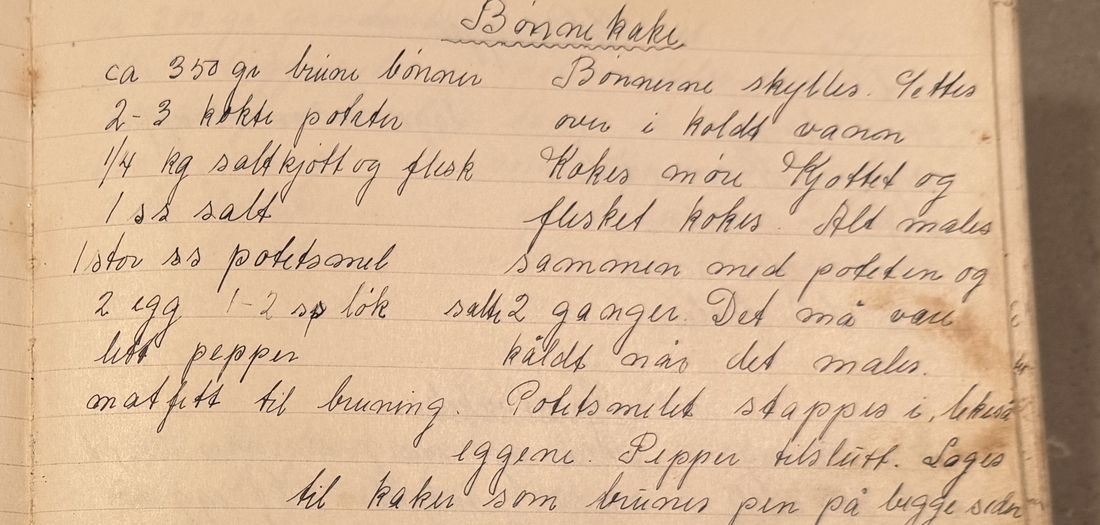 Bønnekake
ca 350 gr brune bønner
2-3 kokte poteter
1/4 kg saltkjøtt og flesk
1 ss salt
1 stor ss potetsmel
2 egg 1-2 ss løk
litt pepper
matfett til bruning.
Bønnerne skylles. Settes
over i koldt vann
Kokes møre Kjøttet og
flesket kokes. Alt males
sammen med poteten og
salte 2 ganger. Det må være
kåldt når det males.
Potetsmelet stappes i, likeså
eggene. Pepper tilslutt. Lages
til kaker som brunes pen på begge sider